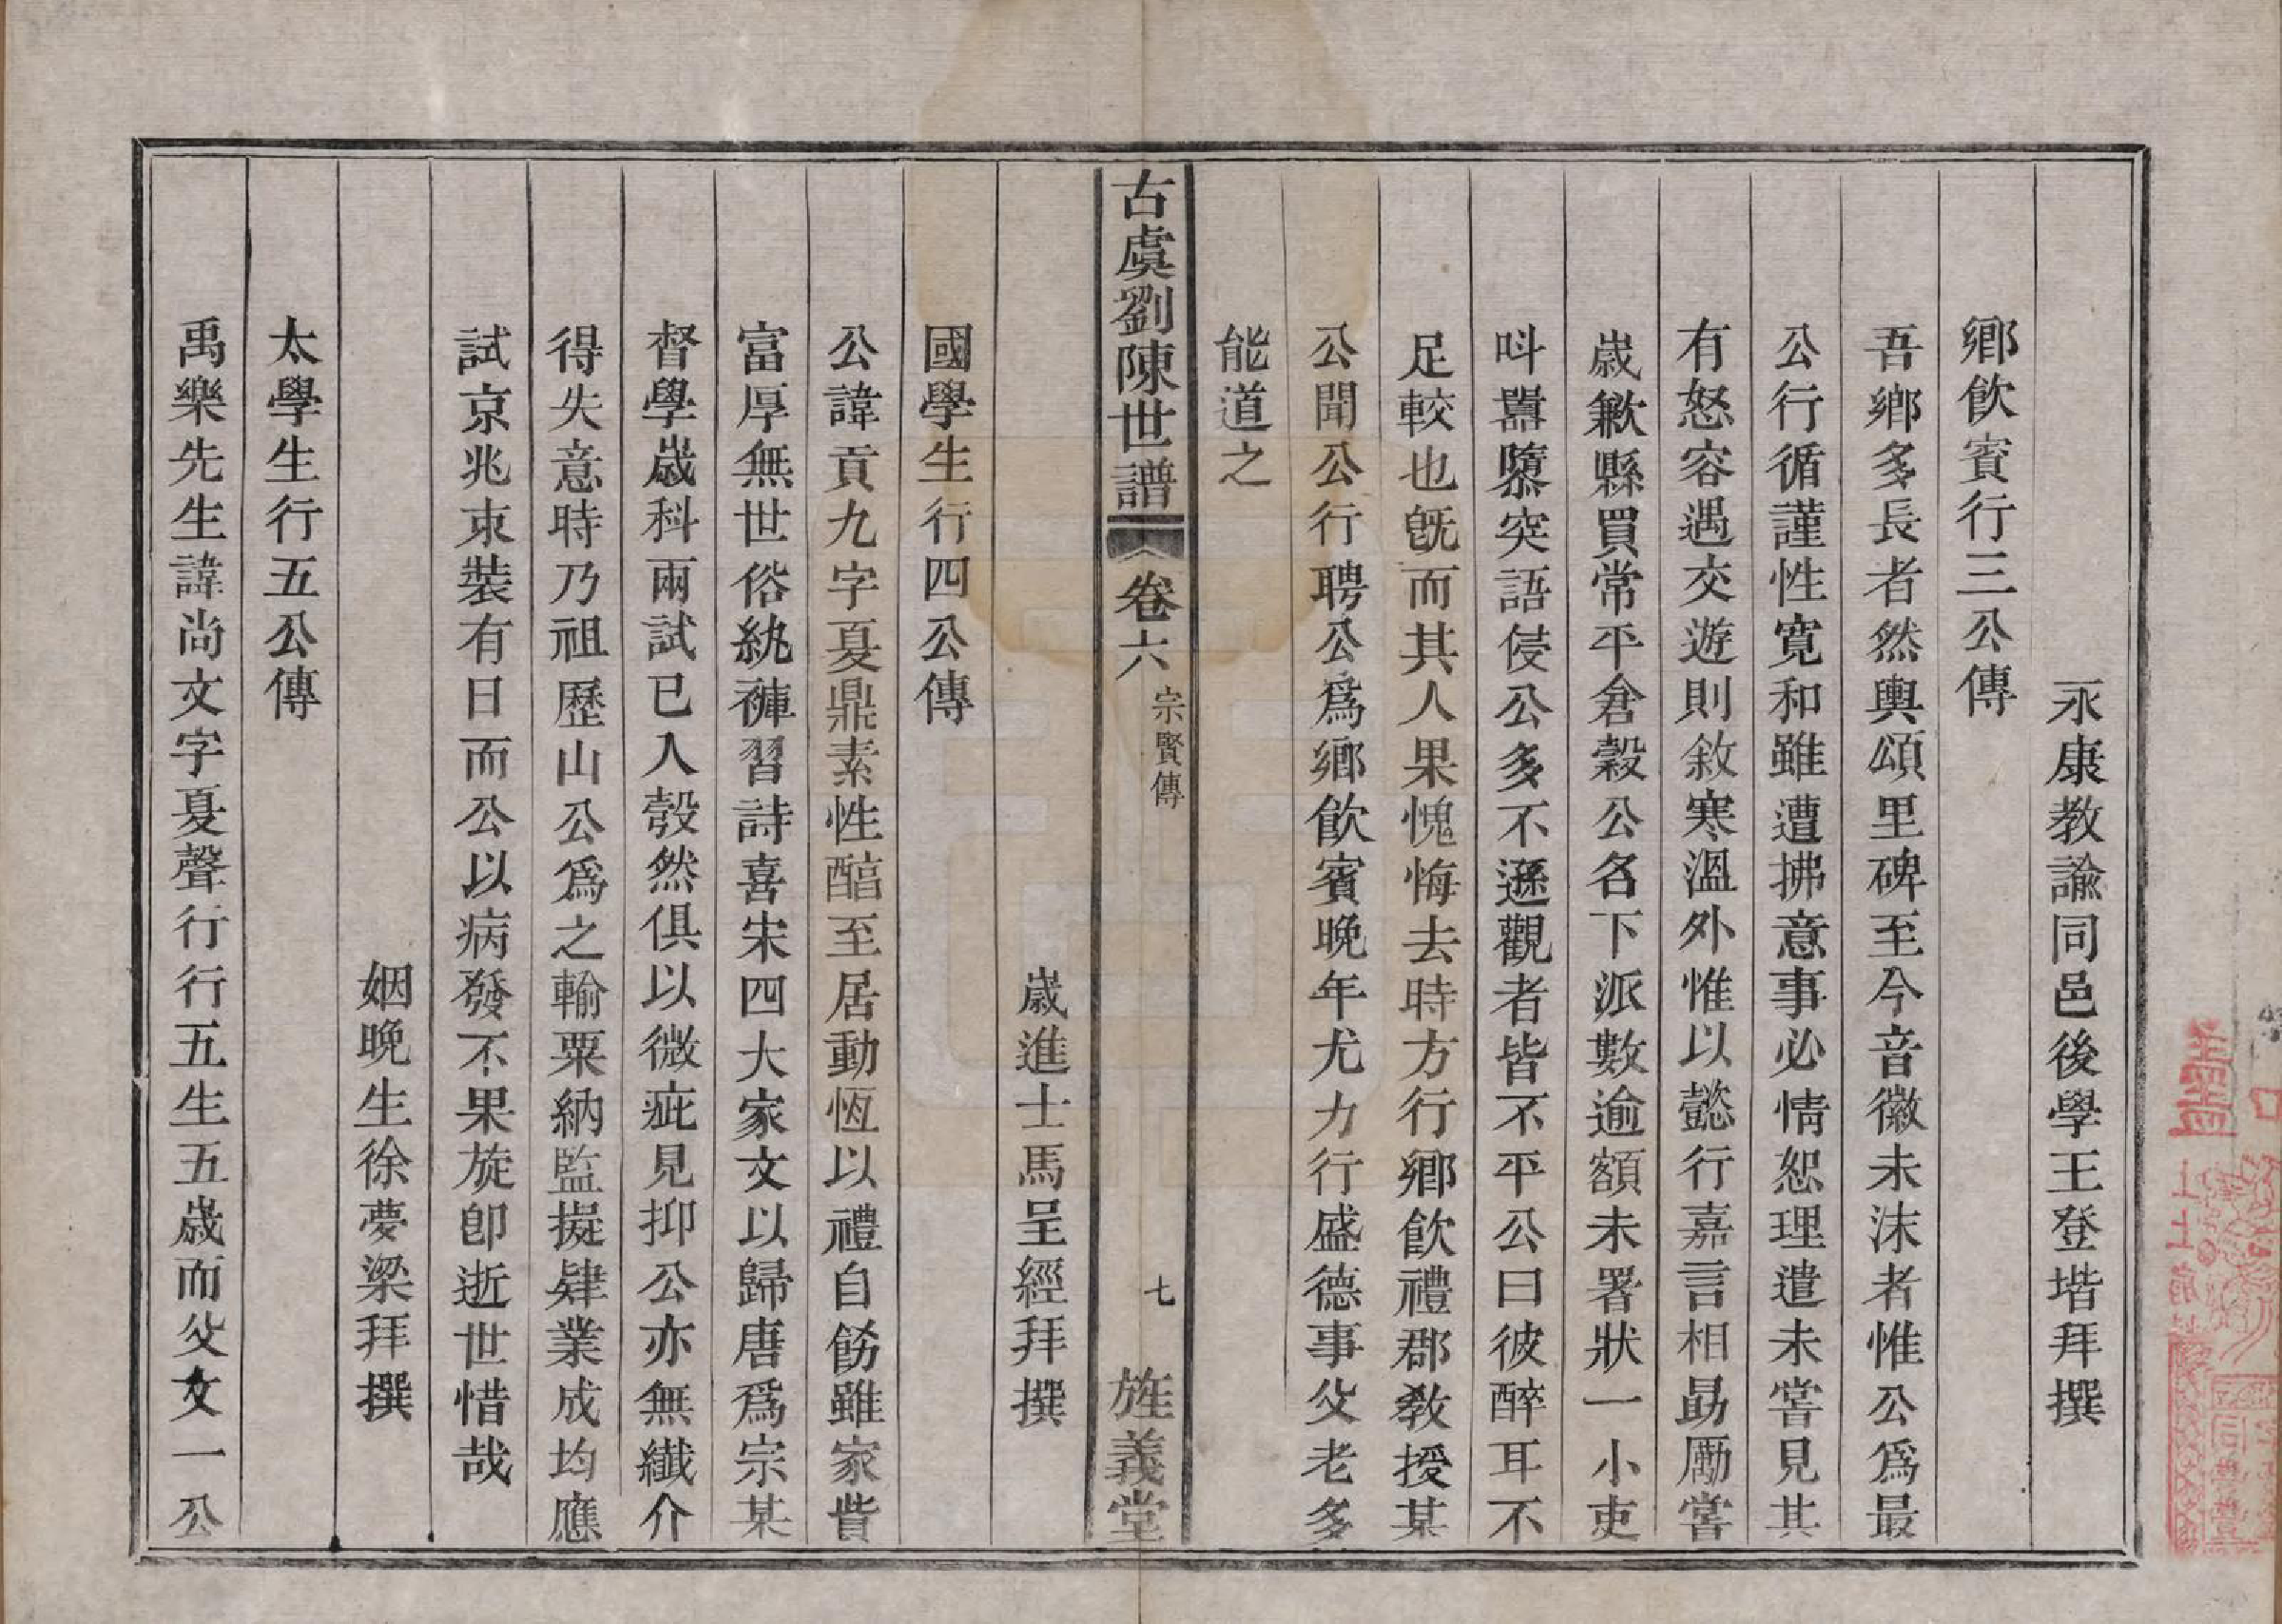 永康教諭同邑後學王登堦拜撰
鄉飲賓行三公傳
吾鄉多長者然輿頌里碑至今音徽未沫者惟公爲最
公行循謹性寬和雖遭拂意事必情恕理遣未嘗見其
有怒容遇交遊則敘寒溫外惟以懿行嘉言相勗勵嘗
歲歉縣買常平倉穀公名下派數逾額未署狀一小吏
呌囂隳突語侵公多不遜觀者皆不平公曰彼醉耳不
足較也旣而其人果愧悔去時方行鄉飲禮郡教授某
公聞公行聘公爲鄉飲賓晚年尤力行盛德事父老多
能道之
古虞劉陳世譜 卷六 宗賢傳 七 旌義堂
歲進士馬呈經拜撰
國學生行四公傳
公諱貢九字夏鼎素性醕至居動恆以禮自飭雖家貲
富厚無世俗紈褲習詩喜宋四大家文以歸唐爲宗某
督學歲科兩試已入彀然俱以微疵見抑公亦無纖介
得失意時乃祖歷山公爲之輸粟納監擬肄業成均應
試京兆束裝有日而公以病發不果旋卽逝世惜哉
姻晚生徐夢梁拜撰
太學生行五公傳
禹樂先生諱尚文字夏聲行行五生五歲而父文一公